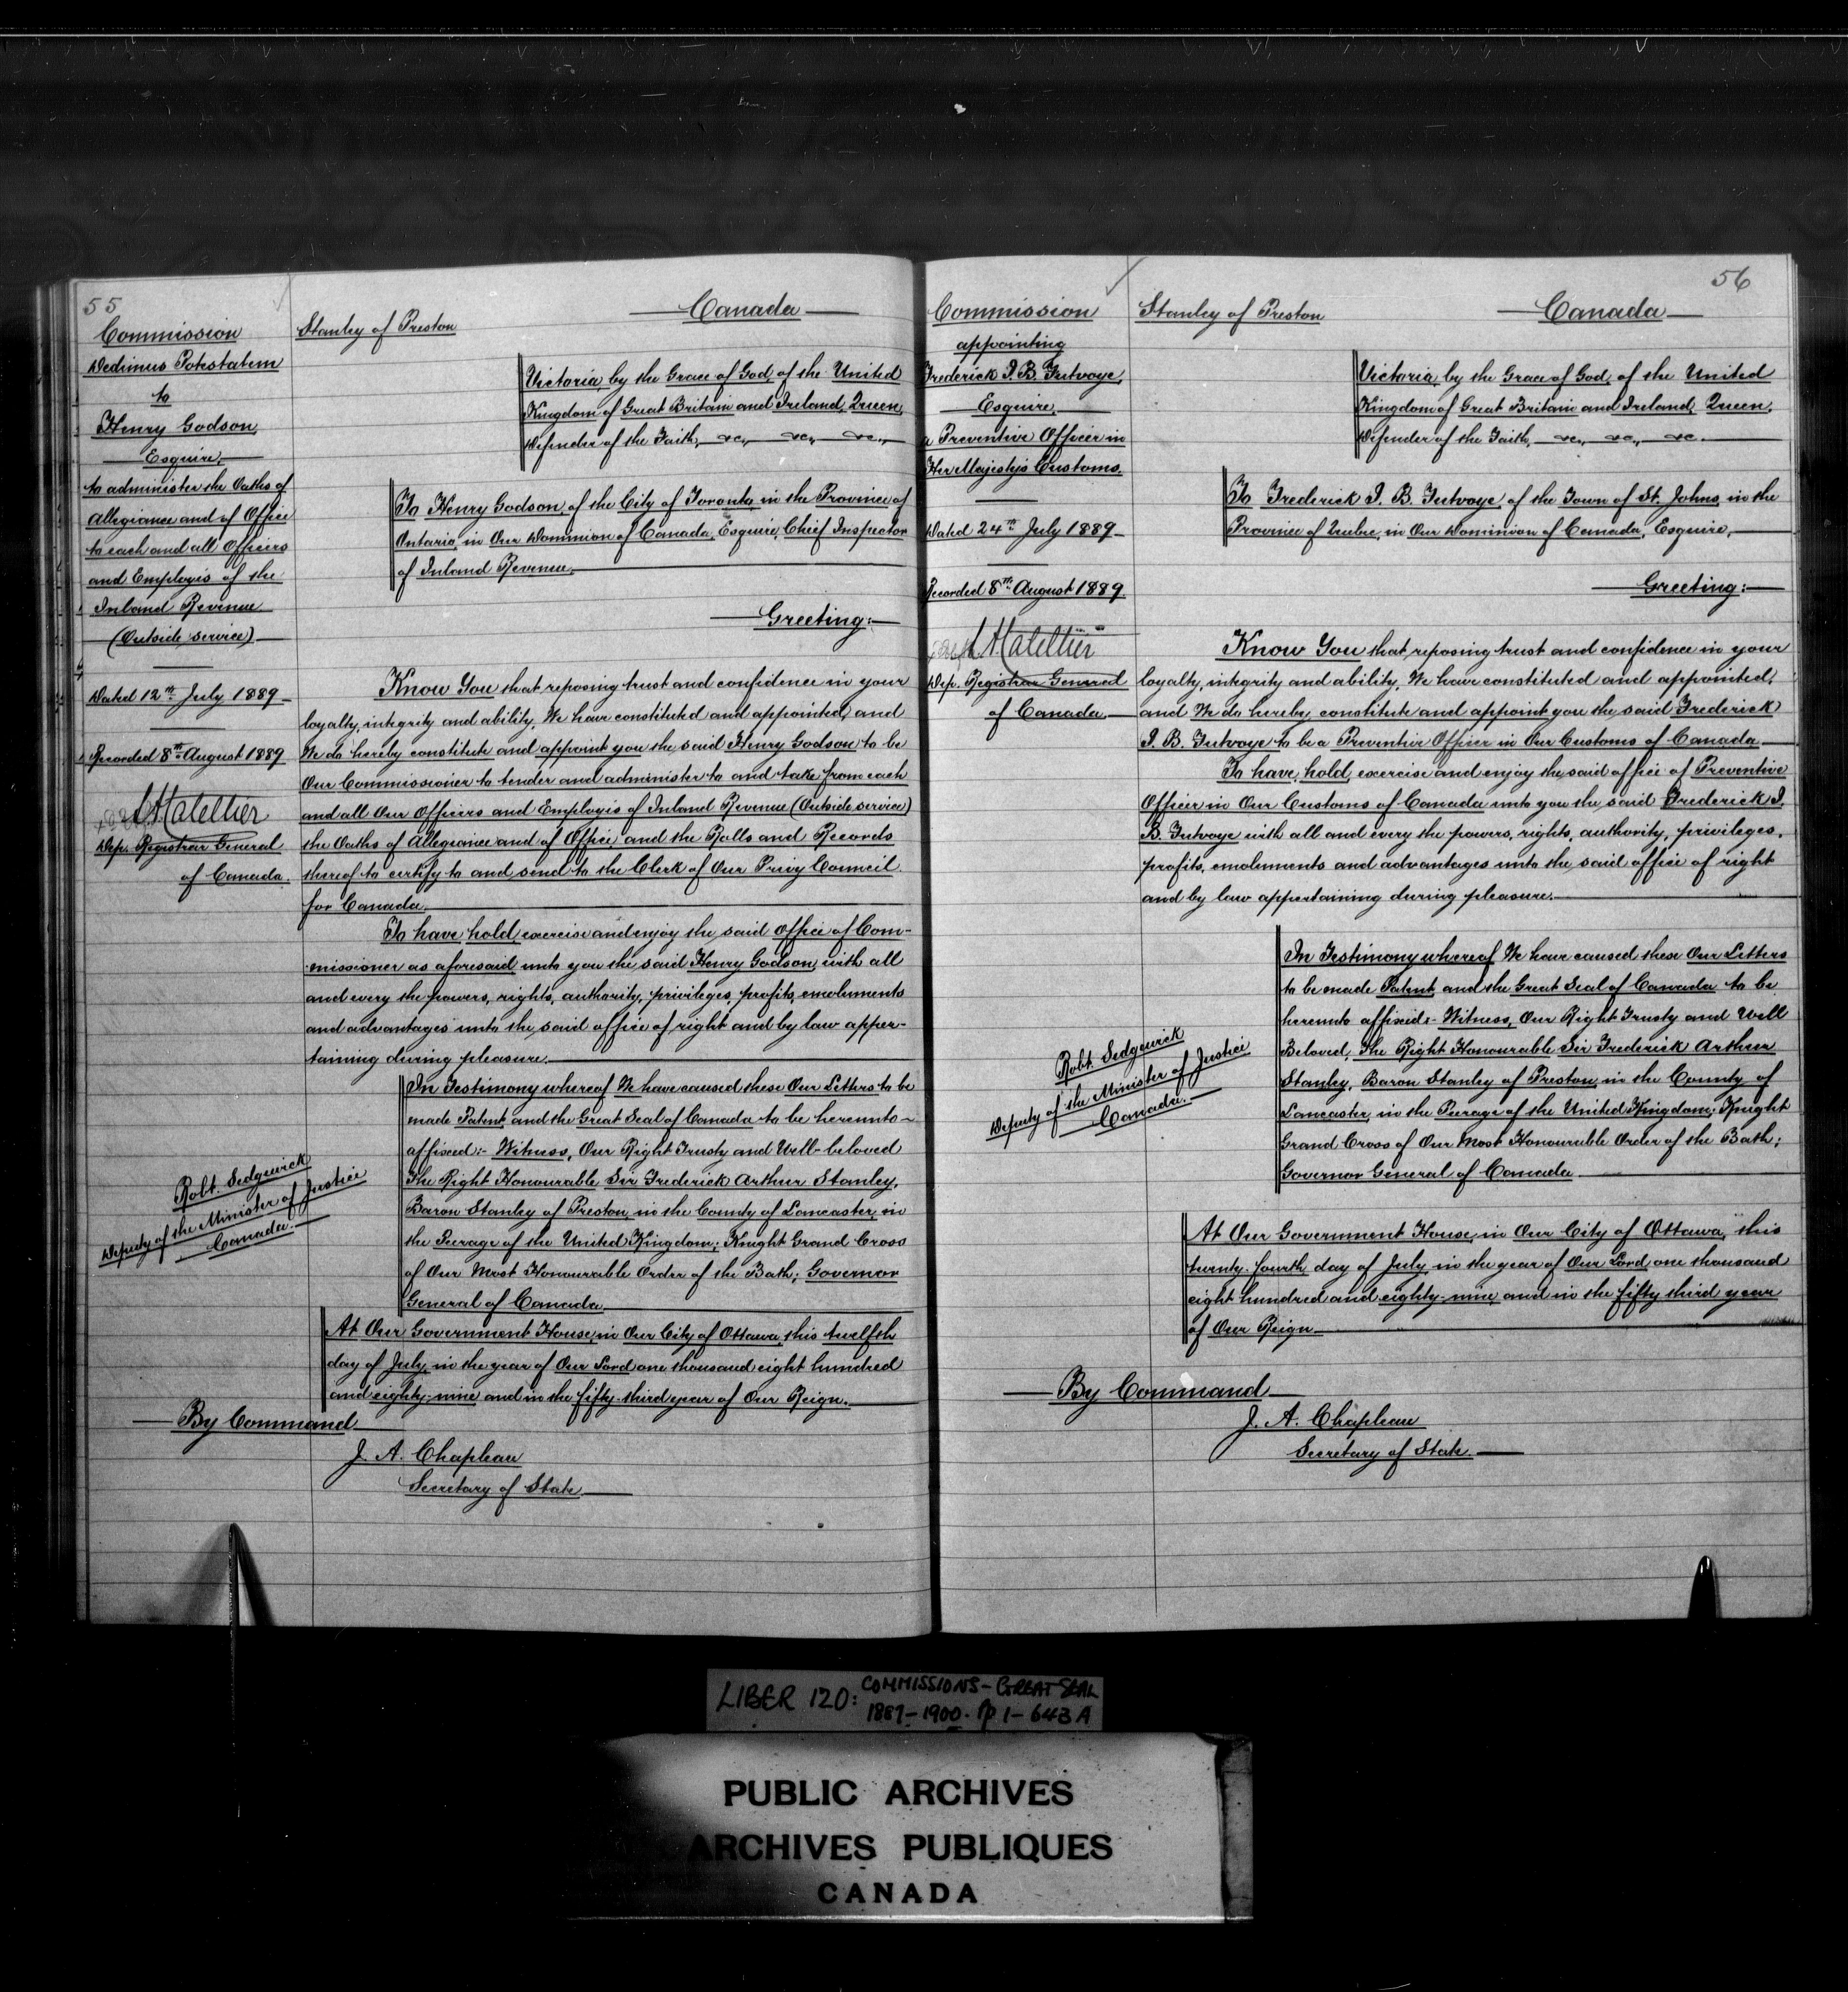 55
Commission
Dedimus Potestatem
to
Henry Godson,
Esquire,
to administer the Oaths of
Allegiance and of Office
to each and all Officers
and Employés of the
Inland Revenue
(Outside service)
Dated 12th July 1889
Recorded 8th August 1889
Dep. Registrar General
of Canada.
Robt. Sedgewick
Deputy of the Minister of Justice
Canada.
Stanley of Preston
Canada
Victoria, by the Grace of God, of the United
Kingdom of Great Britain and Ireland, Queen,
Defender of the Faith, &c., &c., &c.,
To Henry Godson, of the City of Toronto, in the Province of
Ontario, in Our Dominion of Canada, Esquire, Chief Inspector
of Inland Revenue,
Greeting:
Know You that, reposing trust and confidence in your
loyalty, integrity and ability, We have constituted and appointed, and
We do hereby constitute and appoint you the said Henry Godson to be
Our Commissioner to tender and administer to and take from each
and all Our Officers and Employés of Inland Revenue (Outside service)
the Oaths of Allegiance and of Office, and the Rolls and Records
thereof to certify to and send to the Clerk of Our Privy Council
for Canada.
To have, hold, exercise and enjoy the said Office of Com-
-missioner as aforesaid unto you the said Henry Godson, with all
and every the powers, rights, authority, privileges, profits, emoluments
and advantages unto the said office of right and by law apper-
taining during pleasure.
In Testimony whereof We have caused these Our Letters to be
made Patent, and the Great Seal of Canada to be hereunto
affixed:- Witness, Our Right Trusty and Well-beloved
The Right Honourable Sir Frederick Arthur Stanley,
Baron Stanley of Preston, in the County of Lancaster, in
the Peerage of the United Kingdom; Knight Grand Cross
of Our Most Honourable Order of the Bath; Governor
General of Canada
At Our Government House, in Our City of Ottawa, this twelfth
day of July, in the year of Our Lord one thousand eight hundred
and eighty-nine, and in the fifty-third year of Our Reign.
By Command
J. A. Chapleau
Secretary of State
56
Commission
appointing
Frederick J. B. Futvoye,
Esquire,
a Preventive Officer in
Her Majesty's Customs.
Dated 24th July 1889
Recorded 8th August 1889.
Dep. Registrar General
of Canada
Robt. Sedgewick
Deputy of the Minister of Justice
Canada.
Stanley of Preston
Canada
Victoria, by the Grace of God, of the United
Kingdom of Great Britain and Ireland, Queen,
Defender of the Faith, &c., &c., &c.
To Frederick J. B. Futvoye, of the Town of St. Johns, in the
Province of Quebec, in Our Dominion of Canada, Esquire,
Greeting:
Know You that, reposing trust and confidence in your
loyalty, integrity and ability, We have constituted and appointed,
and We do hereby constitute and appoint you the said Frederick
J. B. Futvoye to be a Preventive Officer in Our Customs of Canada
To have, hold, exercise and enjoy the said office of Preventive
Officer in Our Customs of Canada unto you the said Frederick J.
B. Futvoye with all and every the powers, rights, authority, privileges,
profits, emoluments and advantages unto the said office of right
and by law appertaining during pleasure.
In Testimony whereof We have caused these Our Letters
to be made Patent, and the Great Seal of Canada to be
hereunto affixed:- Witness, Our Right Trusty and Well
Beloved, The Right Honourable Sir Frederick Arthur
Stanley, Baron Stanley of Preston, in the County of
Lancaster, in the Peerage of the United Kingdom; Knight
Grand Cross of Our Most Honourable Order of the Bath;
Governor General of Canada
At Our Government House, in Our City of Ottawa, this
twenty-fourth day of July, in the year of Our Lord, one thousand
eight hundred and eighty-nine, and in the fifty third year
of Our Reign
By Command
J. A. Chapleau
Secretary of State.
LIBER 120: COMMISSIONS - GREAT SEAL
1889-1900. pp 1-643A
PUBLIC ARCHIVES
ARCHIVES PUBLIQUES
CANADA